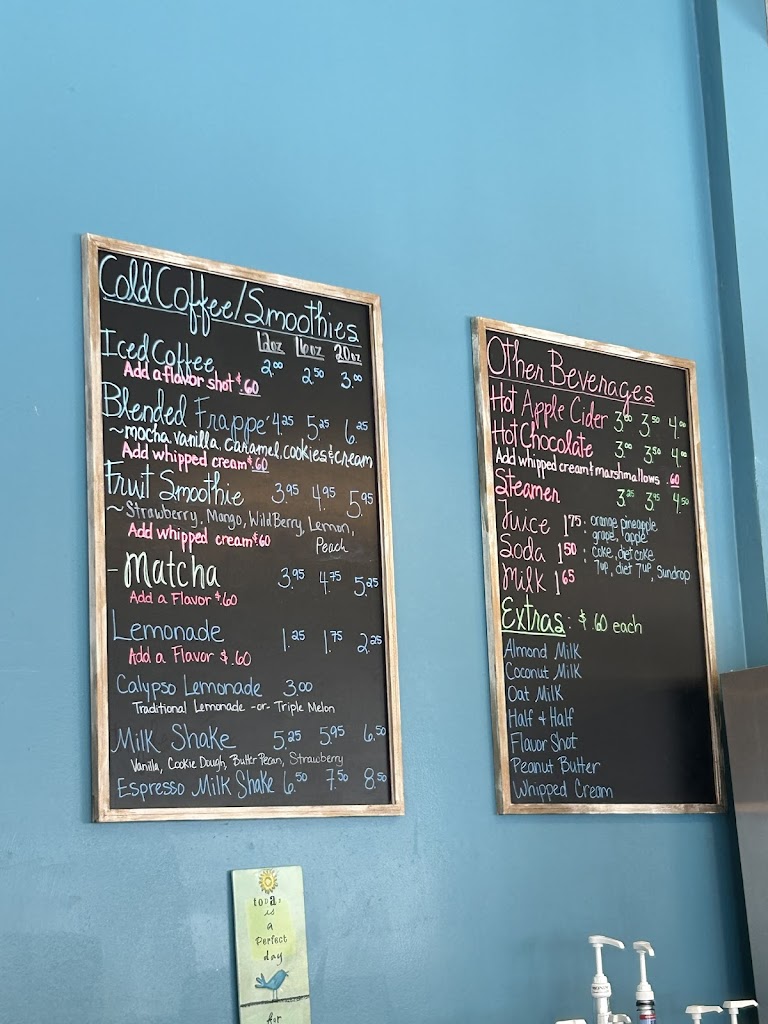 Cold Coffee/Smoothies
12oz 16oz 20oz
Iced Coffee 2.00 2.50 3.00
Add a flavor shot $.60
Blended Frappe' 4.25 5.25 6.25
~mocha, vanilla, caramel, cookies & cream
Add whipped cream $.60
Fruit Smoothie 3.95 4.95 5.95
~Strawberry, Mango, WildBerry, Lemon,
Peach
Add whipped cream $.60
-Matcha 3.95 4.75 5.25
Add a Flavor $.60
Lemonade 1.25 1.75 2.25
Add a Flavor $.60
Calypso Lemonade 3.00
Traditional Lemonade -or- Triple Melon
Milk Shake 5.25 5.95 6.50
Vanilla, Cookie Dough, Butter Pecan, Strawberry
Espresso Milk Shake 6.50 7.50 8.50
Other Beverages
Hot Apple Cider 3.00 3.50 4.00
Hot Chocolate 3.00 3.50 4.00
Add whipped cream & marshmallows .60
Steamer 3.25 3.95 4.50
Juice 1.75 : orange, pineapple
grape, apple
Soda 1.50 : coke, diet coke
7up, diet 7up, sundrop
Milk 1.65
Extras: $.60 each
Almond Milk
Coconut Milk
Oat Milk
Half & Half
Flavor Shot
Peanut Butter
Whipped Cream
today
is
a
Perfect
day
for